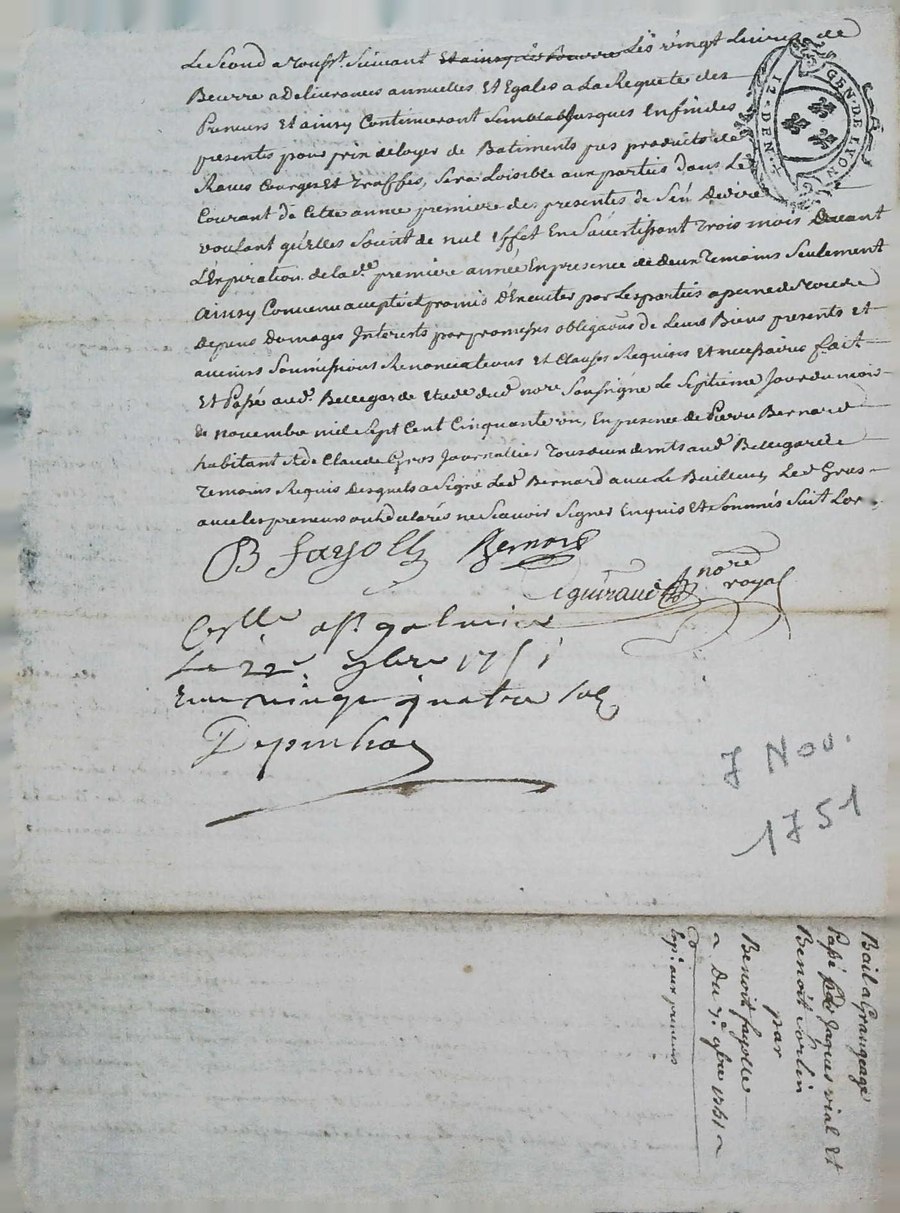 Le Second a Toussts. Suivant Et ainsy des Beurre Les vingt Livres de
Beurre a Delivrances annuelles Et Egales a La Requete des
Preneurs Et ainsy Continueront Semblab Jusques Enfin des
presentes pour prix de loyer de Batiments pris produits de
Raves Courges Et Truffes, Sera Loisible aux parties Dans Le
Courant de Cette année premiere des presentes de S'en
voulant qu'elles Soient de nul Effet En S'avertissant Trois mois Devant
L'Expiration de lade. premiere année En presence de deux Temoins Seulement
ainsy Convenu accepté et promis D'Executer par Les parties a peine de Tous
Depens Domages Interests par promesses obligaons de Leurs Biens presents et
avenirs Soumissions Renonciations Et Clauses Requises Et necessaires fait
Et Passé aud. Bellegarde Etude dud nore Soussigné Le Septieme Jour du mois
de novembre mil Sept Cent Cinquante un, En presence de Pierre Bernard
habitant Et de Claude Gros Journallier Tous deux demts aud Bellegarde
Temoins Requis Desquels a Signé Led Bernard avec Le Bailleur, Led Gros
avec Les preneurs ont declarés ne Scavoir Signer Enquis Et Sommés Suit Lor
GEN. DE LYON
B fayolle Bernard
guiraud nore royal
Collé a St. galmier
Le 22e. 9bre 1751
vingt quatre Sols
7 Nov.
1751
Bail a Grangeage
Passé a Jaques vial Et
Benoit Sorlin
par
Benoit fayolle
Du 7e. 9bre 1751
Exp. aux preneurs